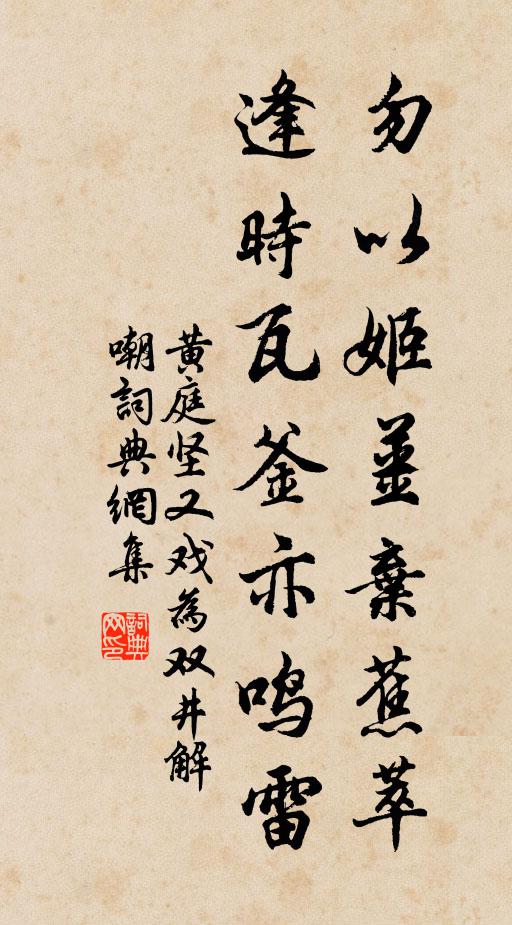 勿以姬薑棄蕉萃
逢時瓦釜亦鸣雷
黄庭坚又戏為双井解
嘲詞典網集
詞典
网印